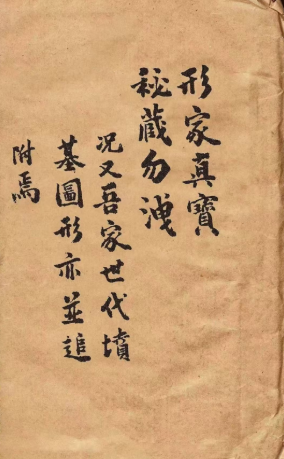 形家真寶
秘蔵勿洩
況又吾家世代墳
墓圖形亦並追
附焉